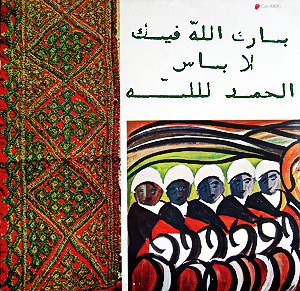 بارك الله فيك
لا باس
الحمد لللّه